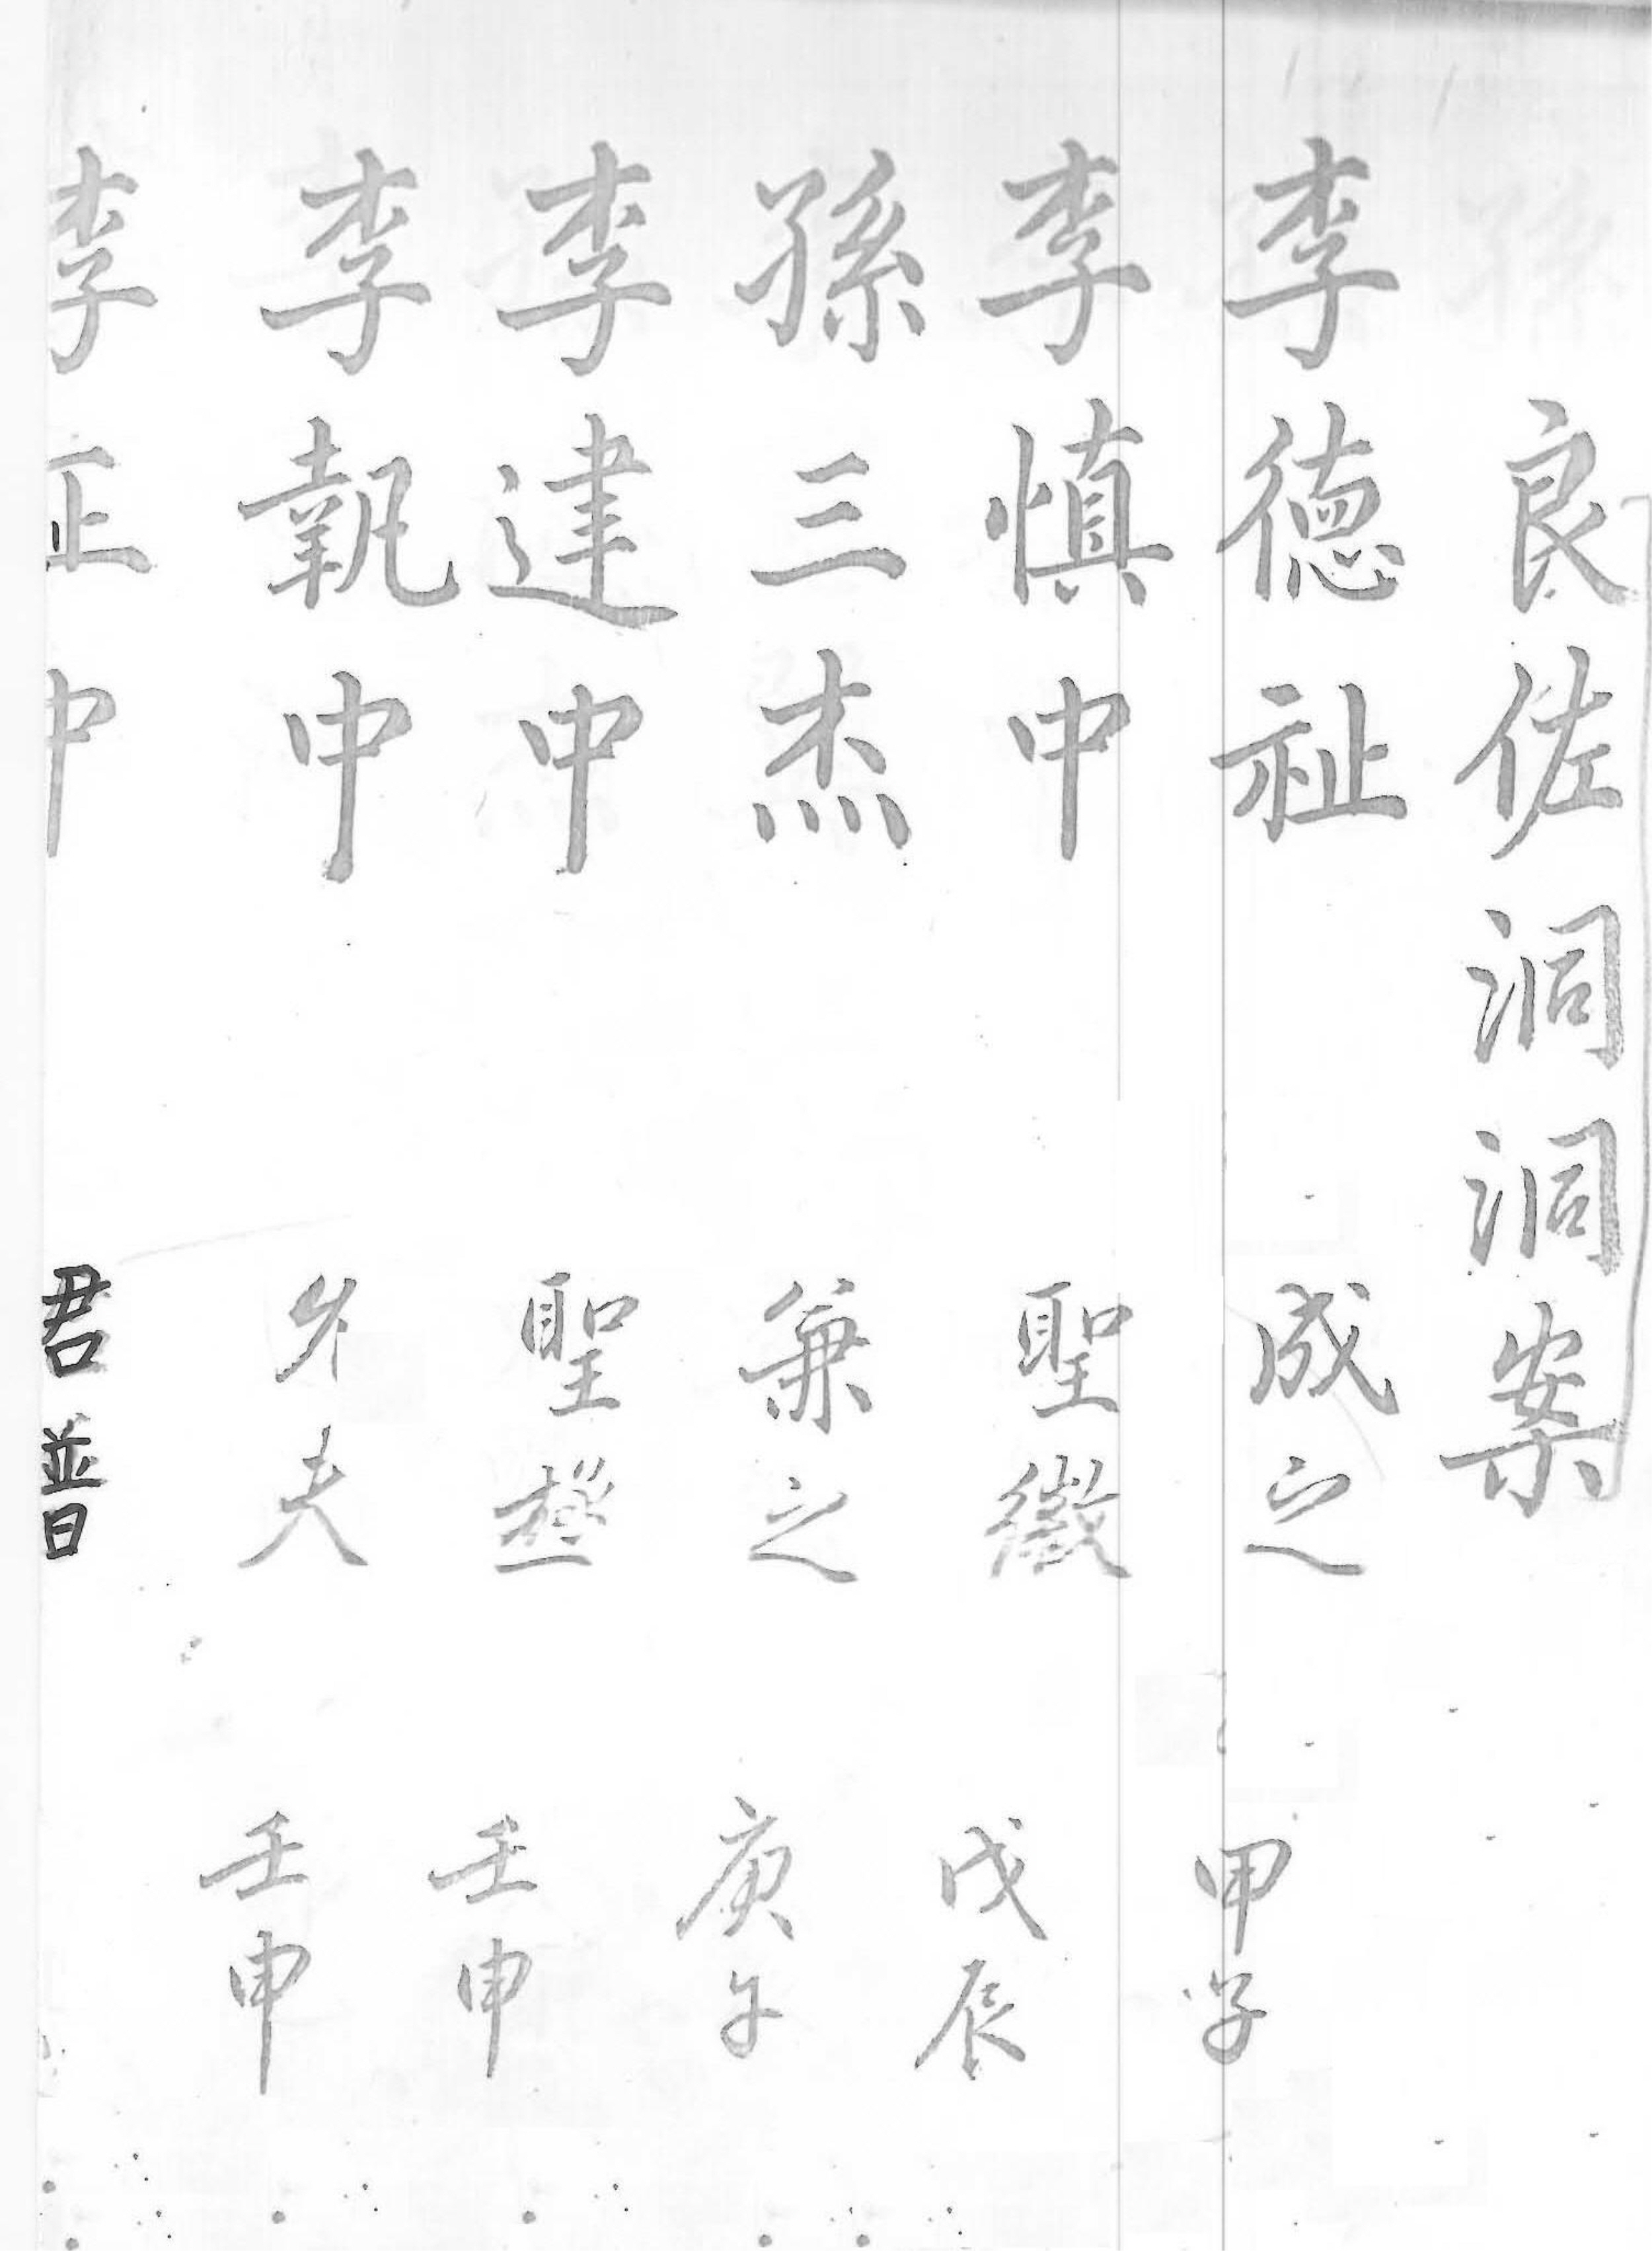 良佐洞洞案
李德祉 成之 甲子
李慎中 聖徵 戊辰
孫三杰 兼之 庚午
李建中 聖 壬申
李執中 夫 壬申
李正中 君普